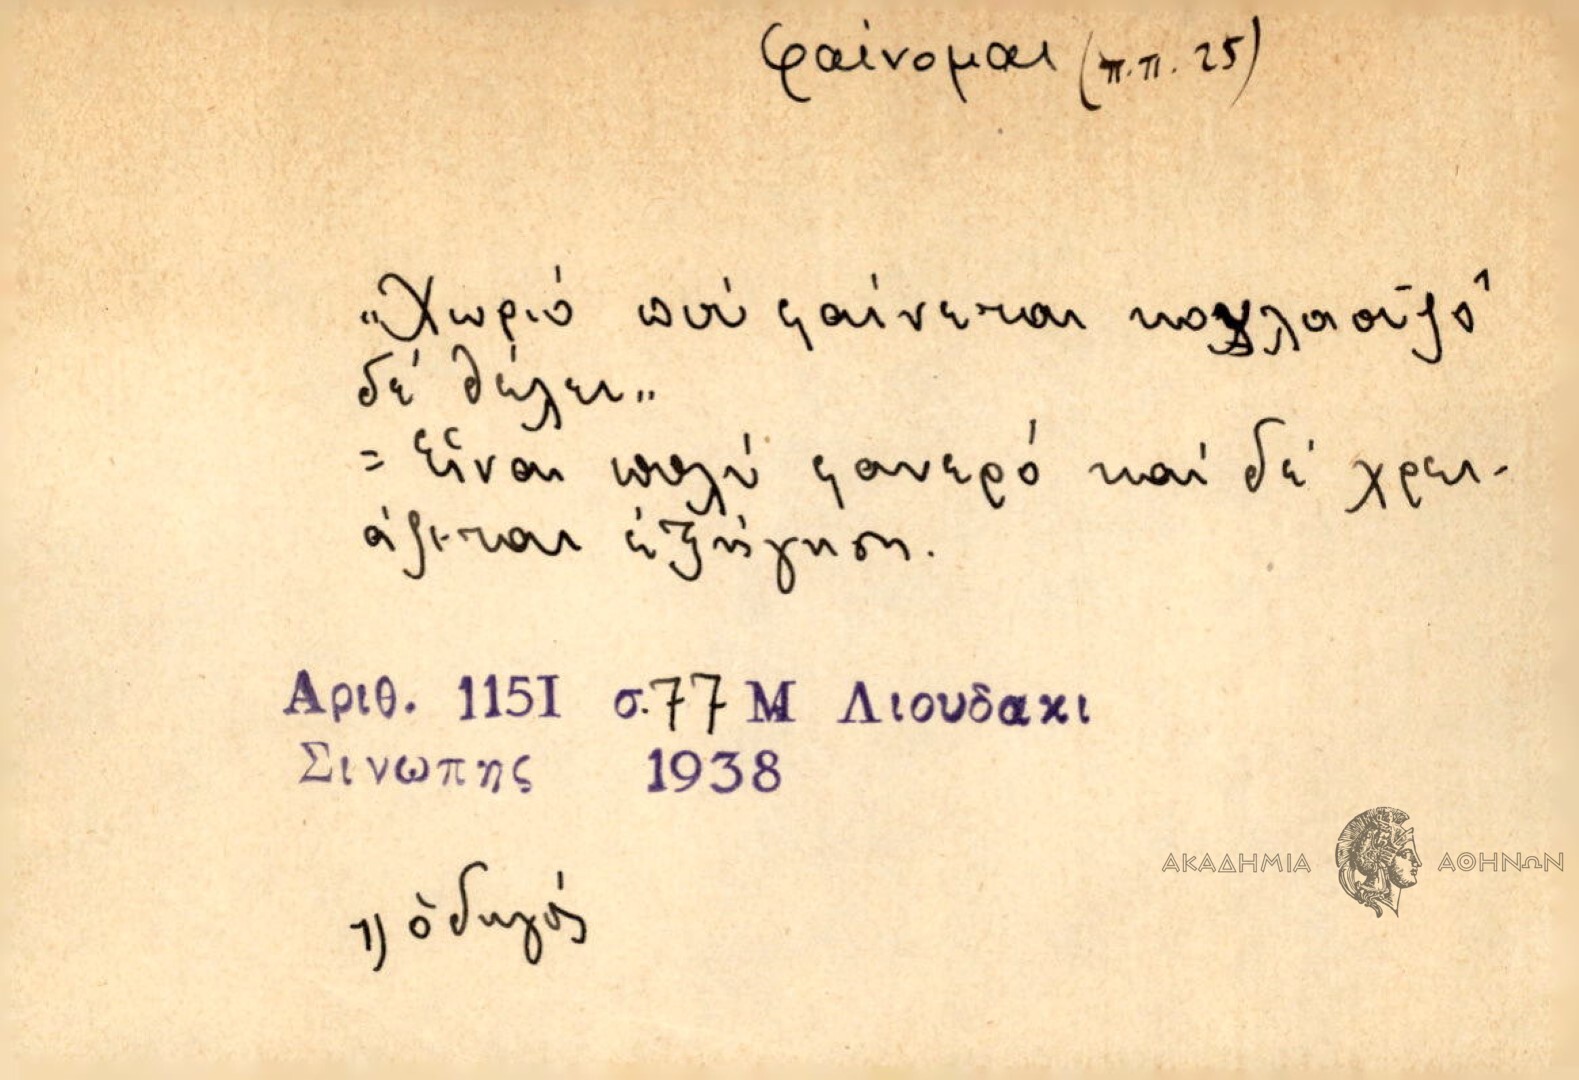 φαίνομαι (π.π. 25)
„Χωριό πού φαίνεται κογλαοῦζο¹
δέ θέλει„
= Εἶναι πολύ φανερό καί δέ χρει-
άζεται ἐξήγηση.
Αριθ. 1151 σ.77 Μ Λιουδακι
Σινωπης 1938
ΑΚΑΔΗΜΙΑ ΑΘΗΝΩΝ
1) ὁδηγός